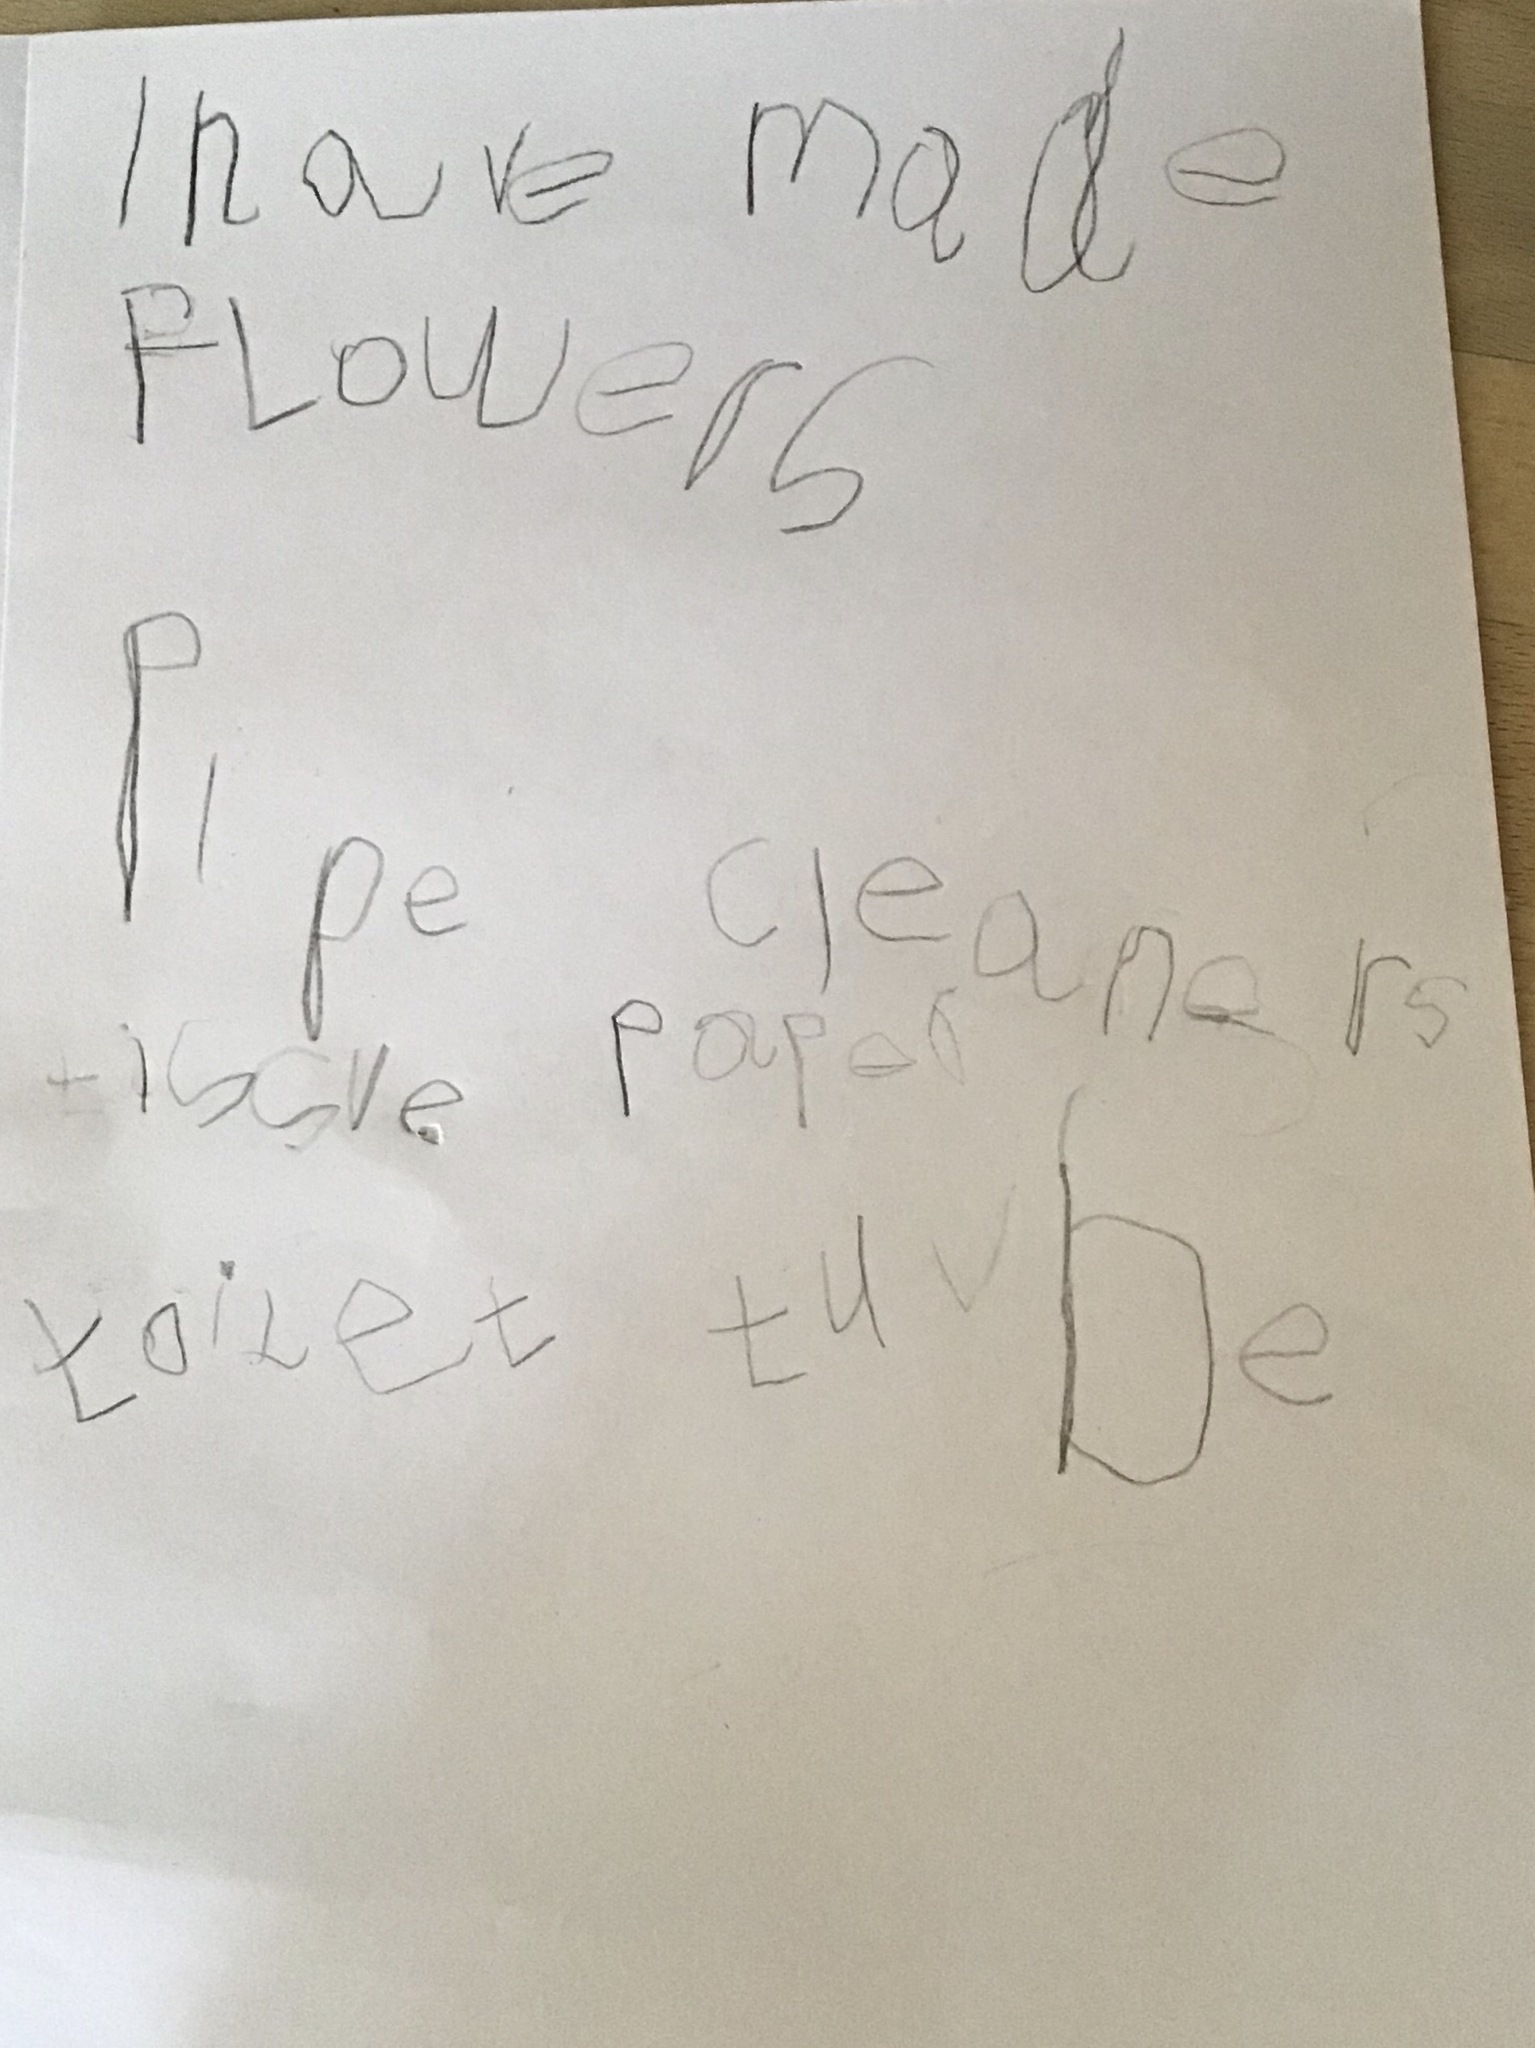 I have made
FLowers
Pipe cleaners
tissve paper
toilet tuvbe